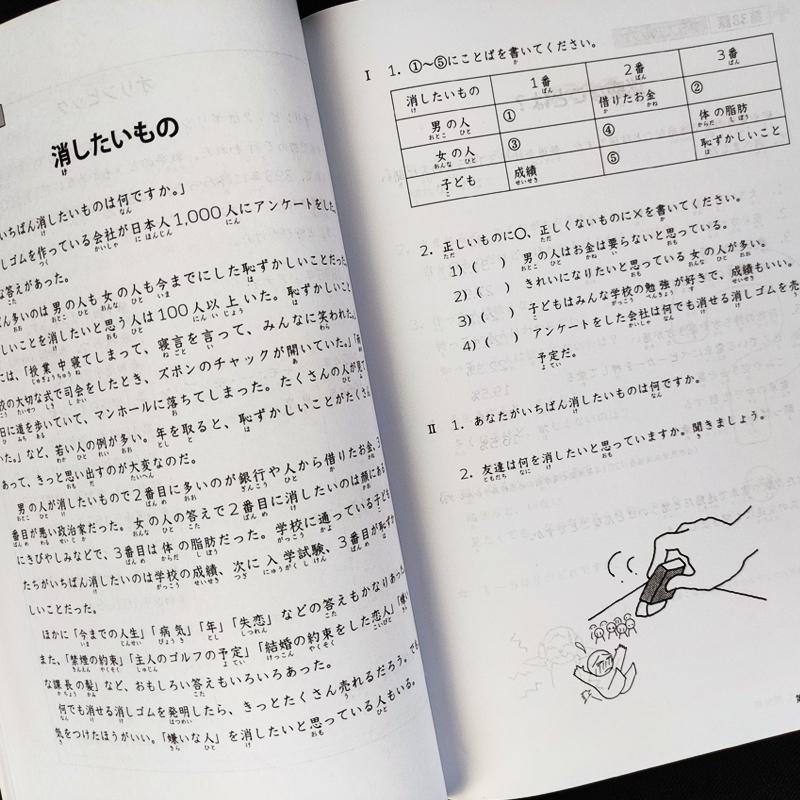 消したいもの
いちばん消したいものは何ですか。」
しゴムを作っている会社が日本人1,000人にアンケートをした。
な答えがあった。
ばん多いのは男の人も女の人も今までにした恥ずかしいことだった。
しいことを消したいと思う人は100人以上いた。恥ずかしいこと
には、「授業中寝てしまって、寝言を言って、みんなに笑われた。
校の大切な式で司会をしたとき、ズボンのチャックが開いていた。」
日に道を歩いていて、マンホールに落ちてしまった。たくさんの人が見て
いた。」など、若い人の例が多い。年を取ると、恥ずかしいことがたくさん
あって、きっと思い出すのが大変なのだ。
男の人が消したいもので2番目に多いのが銀行や人から借りたお金、3
番目が悪い政治家だった。女の人の答えで2番目に消したいのは顔にある
にきびやしみなどで、3番目は体の脂肪だった。学校に通っている子ども
たちがいちばん消したいのは学校の成績、次に入学試験、3番目が恥ずか
しいことだった。
ほかに「今までの人生」「病気」「年」「失恋」などの答えもかなりあった。
また、「禁煙の約束」「主人のゴルフの予定」「結婚の約束をした恋人」「嫌い
な課長の髪」など、おもしろい答えもいろいろあった。
何でも消せる消しゴムを発明したら、きっとたくさん売れるだろう。でも
気をつけたほうがいい。「嫌いな人」を消したいと思っている人もいる。
I 1. ①〜⑤にことばを書いてください。
消したいもの 1番 2番 3番
男の人 ① 借りたお金 ②
女の人 ③ ④ 体の脂肪
子ども 成績 ⑤ 恥ずかしいこと
2. 正しいものに○、正しくないものに×を書いてください。
1) (　) 男の人はお金は要らないと思っている。
2) (　) きれいになりたいと思っている女の人が多い。
3) (　) 子どもはみんな学校の勉強が好きで、成績もいい。
4) (　) アンケートをした会社は何でも消せる消しゴムを売る
予定だ。
II 1. あなたがいちばん消したいものは何ですか。
2. 友達は何を消したいと思っていますか。聞きましょう。